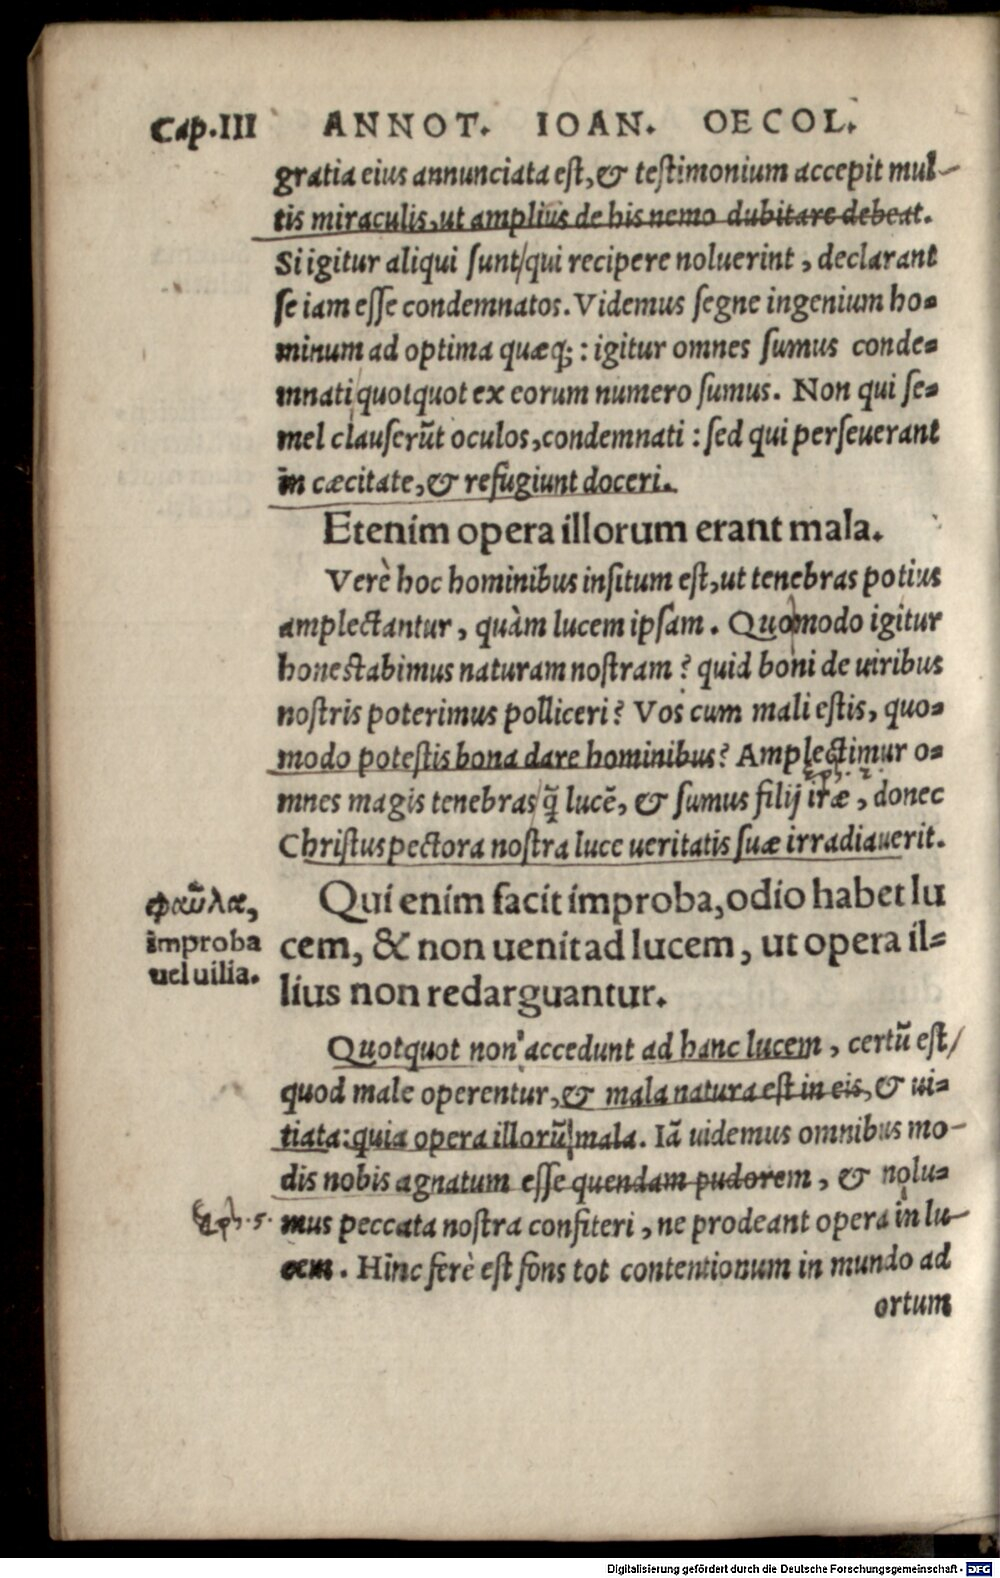 Cap.III ANNOT. IOAN. OECOL.
gratia eius annunciata est, & testimonium accepit mul-
tis miraculis, ut amplius de his nemo dubitare debeat.
Si igitur aliqui sunt/qui recipere noluerint, declarant
se iam esse condemnatos. Videmus segne ingenium ho=
minum ad optima quæq;: igitur omnes sumus conde=
mnati quotquot ex eorum numero sumus. Non qui se=
mel clauserũt oculos, condemnati: sed qui perseuerant
in cæcitate, & refugiunt doceri.
Etenim opera illorum erant mala.
Verè hoc hominibus insitum est, ut tenebras potius
amplectantur, quàm lucem ipsam. Quomodo igitur
honestabimus naturam nostram? quid boni de uiribus
nostris poterimus polliceri? Vos cum mali estis, quo=
modo potestis bona dare hominibus? Amplectimur o=
Eph. 2.
mnes magis tenebras/q̃ lucẽ, & sumus filij iræ, donec
Christus pectora nostra luce ueritatis suæ irradiauerit.
Qui enim facit improba, odio habet lu
cem, & non uenit ad lucem, ut opera il=
lius non redarguantur.
φαῦλα,
improba
uel uilia.
Quotquot non accedunt ad hanc lucem, certũ est/
quod male operentur, & mala natura est in eis, & ui=
tiata: quia opera illorũ mala. Iã uidemus omnibus mo-
dis nobis agnatum esse quendam pudorem, & nolu=
Eph. 5.
mus peccata nostra confiteri, ne prodeant opera in lu-
cem. Hinc ferè est fons tot contentionum in mundo ad
ortum
Digitalisierung gefördert durch die Deutsche Forschungsgemeinschaft - DFG